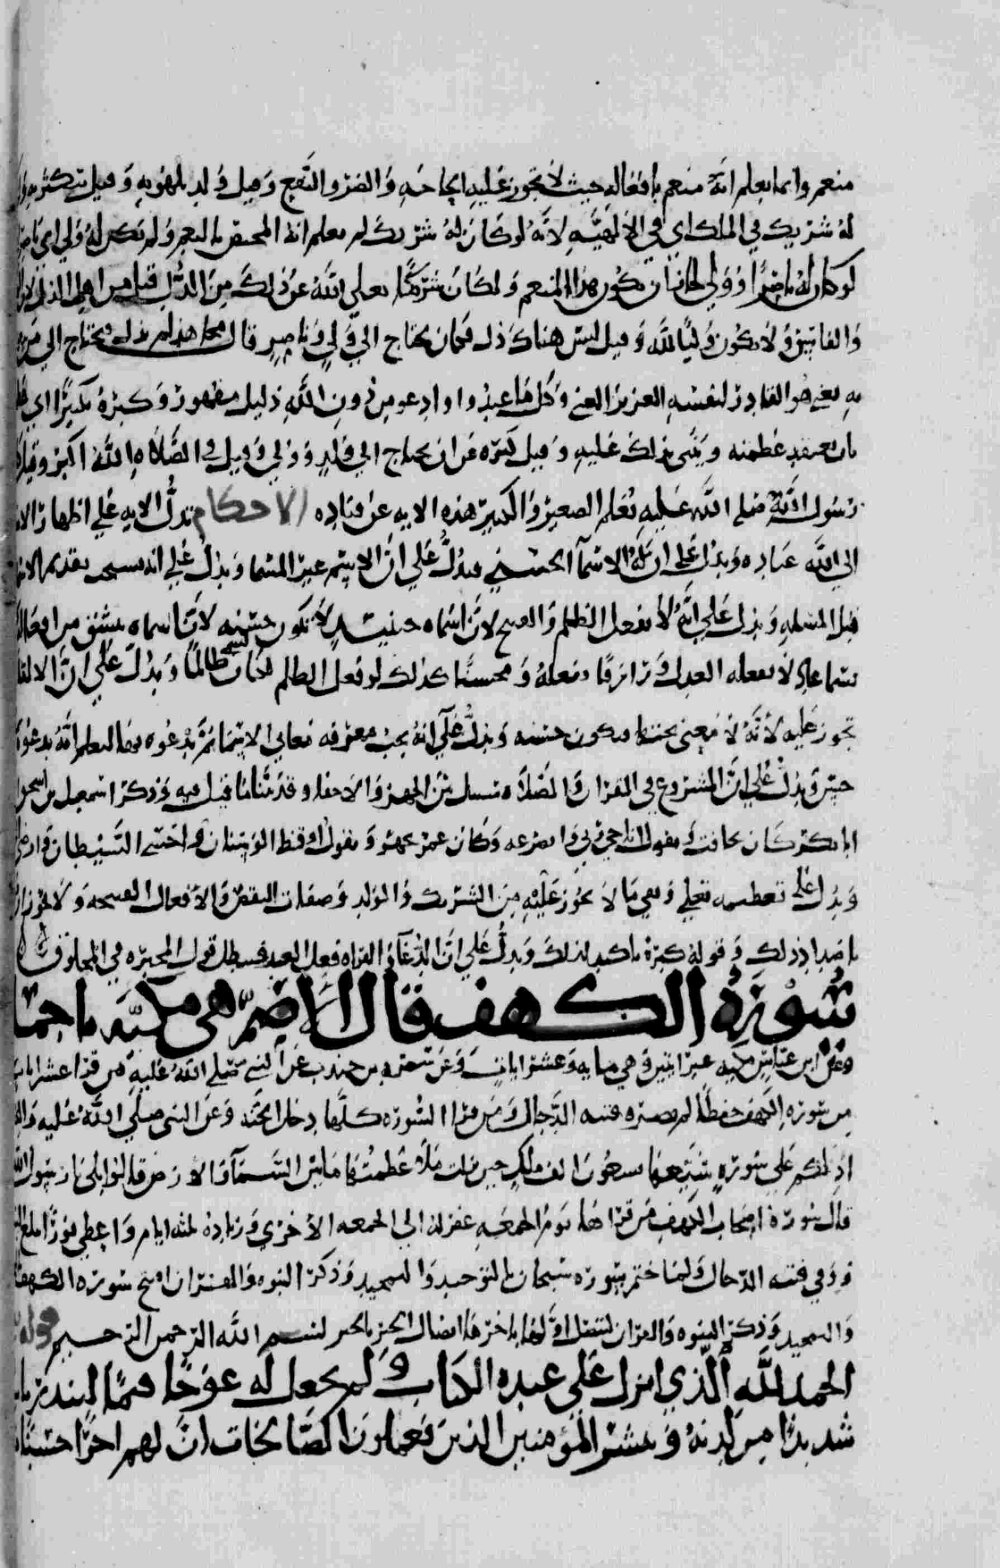 منعم وانما يعلم انه منعم بافعاله حيث لا يجوز عليه الحاجه والضر والنفع وقيل ولد يلهو به وقيل يتكثر به
له شريك في الملك اي في الالهيه لانه لو كان له شريك لم يعلم انه المختص بالنعم ولم يكن له ولي اي ناصر
لو كان له ناصرا وولي لجاز ان يكون هو المنعم ولكان شريكا تعالى الله عن ذلك من الذل قيل من اهل الذل
ولا يكون وليا لله وقيل ليس هناك ذل فكان يحتاج الى ولي وناصر قال مجاهد لم يذل يحتاج الى من
به يعني هو القادر لنفسه العزيز الغني وكل ما عبدوا وادعو من دون الله ذليل مقهور وكبره تكبيرا اي
بان يعتقد عظمته ويثني بذلك عليه وقيل كبره من ان يحتاج الى ولد وولي وقيل في الصلاه الله اكبر
رسول الله صلى الله عليه يعلم الصغير والكبير هذه الايه عن قتاده الاحكام تدل الايه على اظهار
الى الله عباده ويدل على ان له الاسماء الحسنى فيدل على ان الاسم غير المسما ويدل على انه يستحب تقديم
قبل المسله ويدل على انه لا يفعل الظلم والقبيح لان اسماه حينئذ لا تكون حسنه لان اسماه يشتق من افعاله
لا يفعله العدل ورازقا بفعله ومحسنا كذلك لو فعل الظلم لكان يسمى ظالما ويدل على ان
تجوز عليه لانه لا معنى تحتها فيكون حسنه ويدل على انه يجب معرفه معاني الاسما ثم يدعوه بها ليعلم انه يدعوه
ويدل على ان المشروع في القران والصلاه سبيل بين الجهر والاخفا وقد بينا ما قيل فيه وذكر اسمعيل بن اسحق
ابا بكر كان يخافت ويقول اناجي ربي واتضرعه وكان عمر يجهر ويقول اوقظ الوسنان واخسئ الشيطان
ويدل على تعظيمه تعالى ونفي ما لا يجوز عليه من الشريك والولد وصفات النقص والافعال القبيحه ولا
باضداد ذلك وقوله كبره تاكيد لذلك ويدل على ان الدعا والقراه فعل العبد فيبطل قول المجبره في المخلوق
سورة الكهف قال القاضي هي مكيه باجماع
وعن ابن عباس مكيه غير ايتين وهي مايه وعشر ايات وعن سمره بن جندب عن النبي صلى الله عليه من قرا عشر ايات
من سورة الكهف حفظا لم تضره فتنه الدجال ومن قرا السوره كلها دخل الجنه وعن النبي صلى الله عليه واله
ادلكم على سوره شيعها سبعون الف ملك حين نزلت ملا عظمتها ما بين السماء والارض قالوا بلى يا رسول الله
قال سورة اصحاب الكهف من قراها يوم الجمعه غفر له الى الجمعه الاخرى وزياده ثلثه ايام واعطي نورا يبلغ
ووقي فتنه الدجال ولما ختم سوره سبحان بالتوحيد والتحميد وذكر النبوه والقران افتتح سورة الكهف
والتحميد وذكر النبوه والقران ليتصل اولها باخر ما اتصال الجنس بالجنس بسم الله الرحمن الرحيم قوله
الحمد لله الذي انزل على عبده الكتاب ولم يجعل له عوجا قيما لينذر باسا
شديدا من لدنه ويبشر المؤمنين الذين يعملون الصالحات ان لهم اجرا حسنا